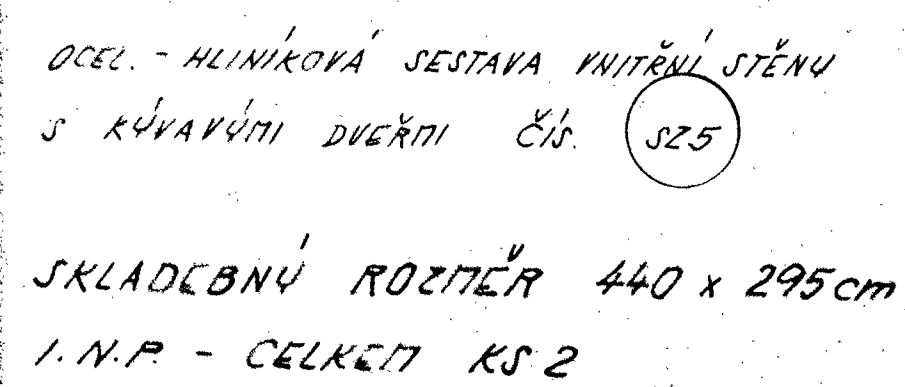 OCEL. - HLINÍKOVÁ SESTAVA VNITŘNÍ STĚNY
S KÝVAVÝMI DVEŘMI ČÍS. SZ5
SKLADEBNÝ ROZMĚR 440 x 295cm
I.N.P. - CELKEM KS 2